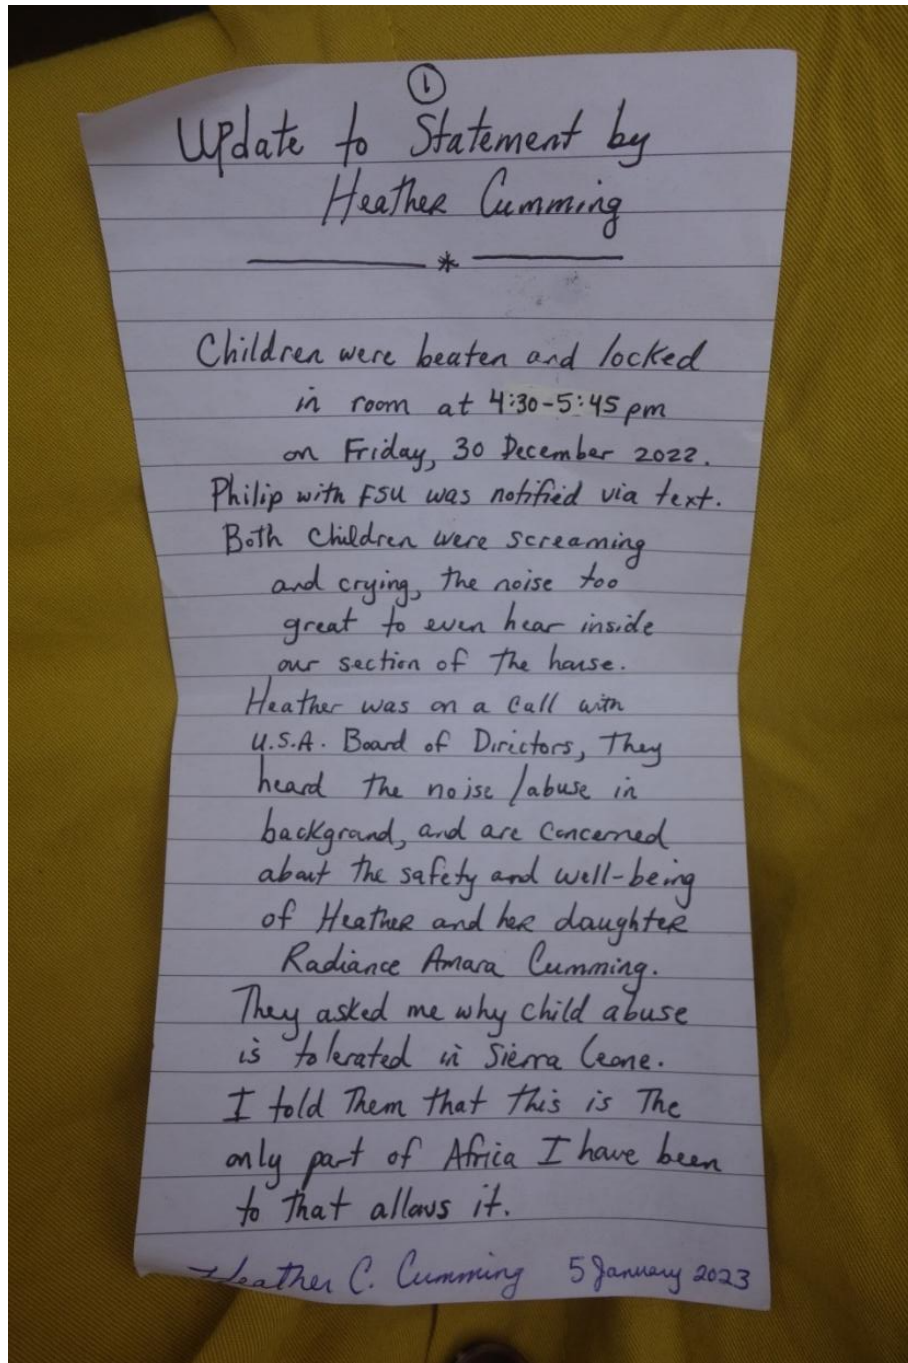 1
Update to Statement by
Heather Cumming
*
Children were beaten and locked
in room at 4:30-5:45 pm
on Friday, 30 December 2022.
Philip with FSU was notified via text.
Both Children were screaming
and crying, the noise too
great to even hear inside
our section of the house.
Heather was on a Call with
U.S.A. Board of Directors, They
heard the noise/abuse in
background, and are concerned
about the safety and well-being
of Heather and her daughter
Radiance Amara Cumming.
They asked me why child abuse
is tolerated in Sierra Leone.
I told Them that this is The
only part of Africa I have been
to that allows it.
Heather C. Cumming 5 January 2023